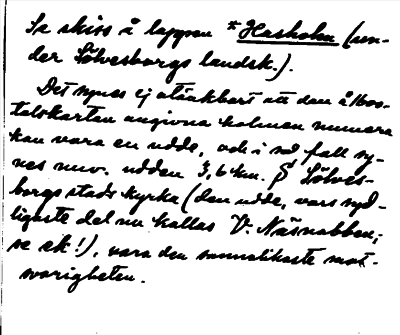 Se skiss å lappen *Hasholm (un-
der Sölvesborgs landsk.).
Det synes ej otänkbart att den å 1600-
talskartan angivna holmen numera
kan vara en udde, och i så fall sy-
nes nuv. udden 3,6 km. S Sölves-
borgs stads kyrka (den udde, vars syd-
ligaste del nu kallas V. Näsnabben;
se sk!), vara den sannolikaste mot-
svarigheten.